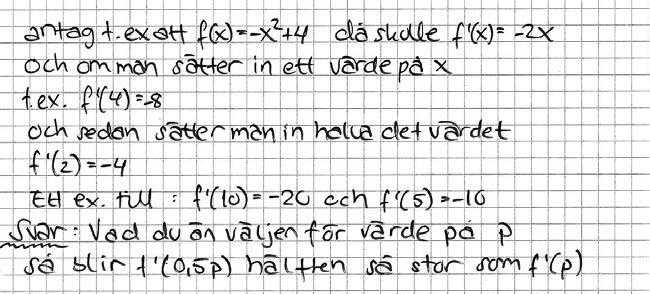 antag t.ex att f(x)=-x²+4 då skulle f'(x)= -2x
och om man sätter in ett värde på x
t.ex. f'(4)=-8
och sedan sätter man in halva det värdet
f'(2)=-4
Ett ex. till : f'(10)=-20 och f'(5)=-10
Svar: Vad du än väljer för värde på p
så blir f'(0,5p) hälften så stor som f'(p)